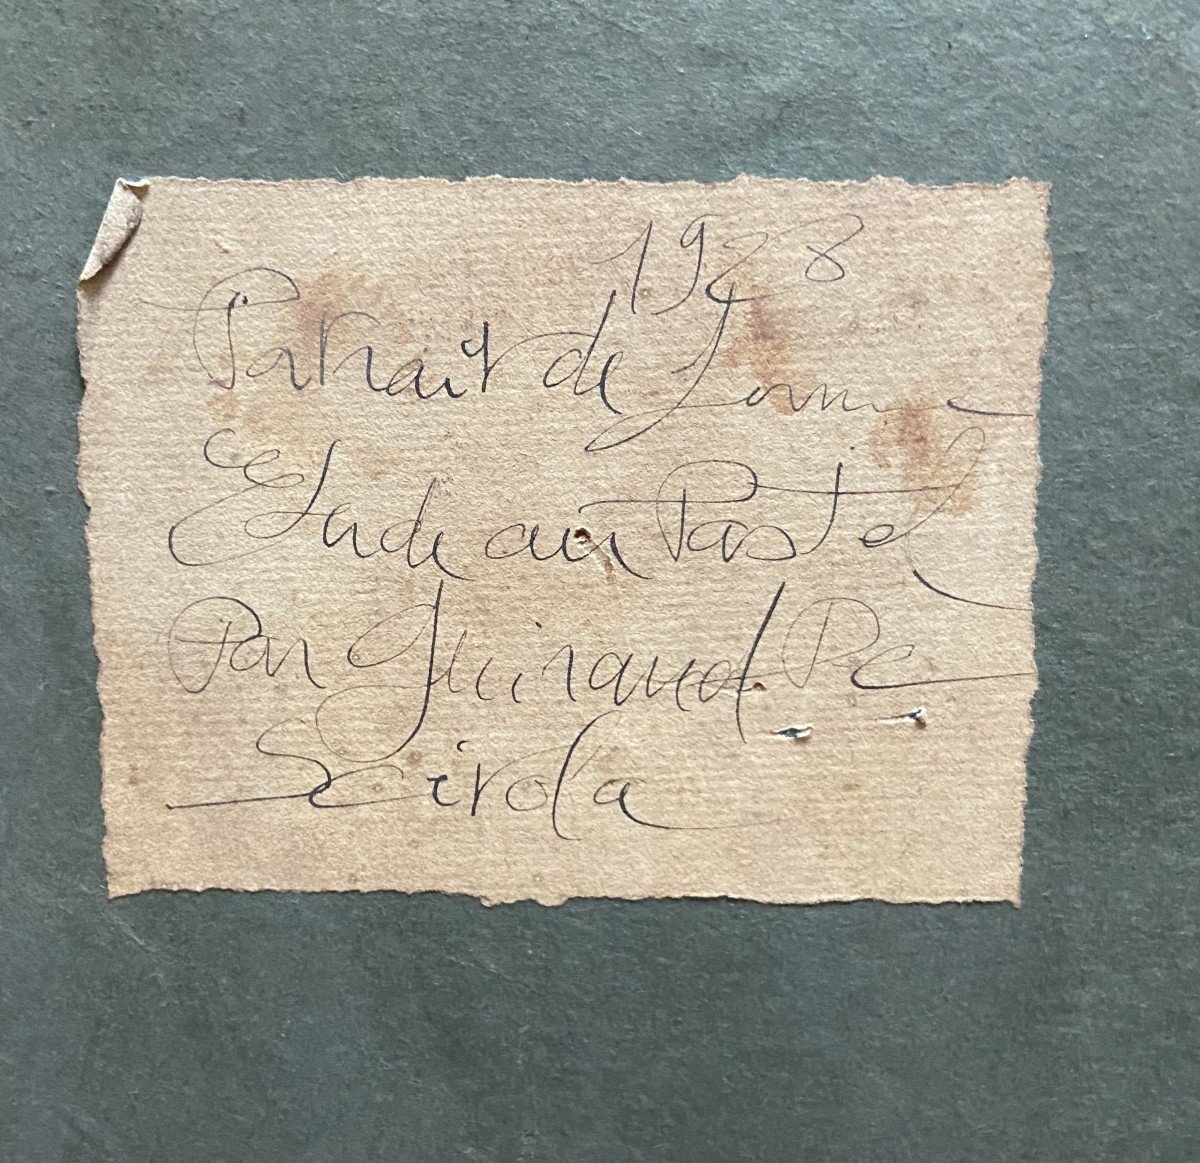 1928
Portrait de femme
Etude au Pastel
Par Guiraud De
Scivola